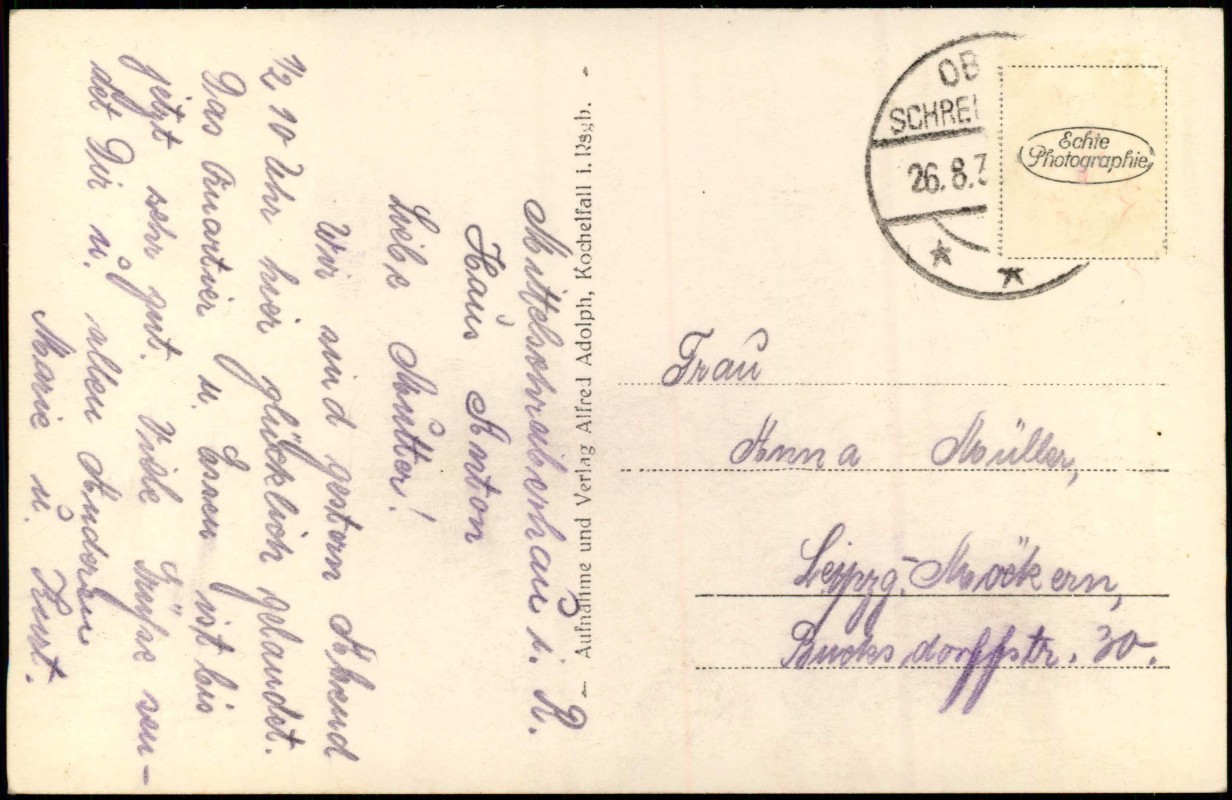 Mittelschreiberhau i. R.
Haus Anton
Liebe Mutter!
Wir sind gestern Abend
½ 10 Uhr hier glücklich gelandet.
Das Quartier u. Essen ist bis
jetzt sehr gut. Viele Grüße sen-
det Dir u. allen Anderen
Marie u. Kurt.
– Aufnahme und Verlag Alfred Adolph, Kochelfall i. Rsgb. -
OB
SCHREI
26.8.3
Echte
Photographie
Frau
Anna Müller,
Leipzg.-Möckern,
Bucksdorffstr. 30.